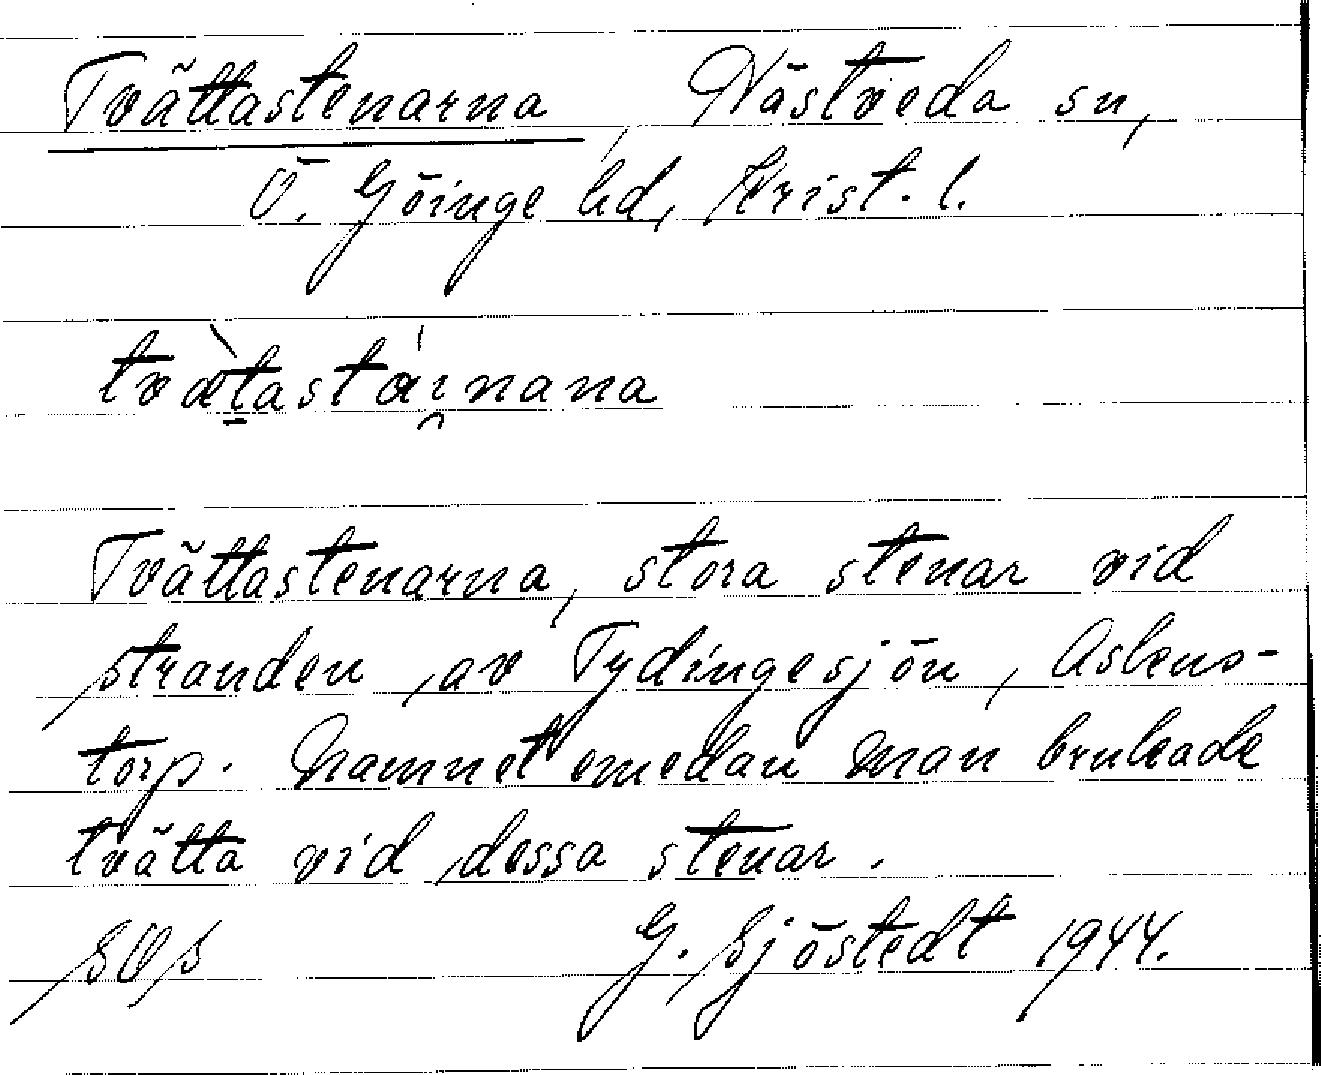 Tvättastenarna, Västveda sn,
Ö. Göinge hd, Krist. l.
tvætastáinana
Tvättastenarna, stora stenar vid
stranden av Tydingesjön, Askens-
torp. Namnet emedan man brukade
tvätta vid dessa stenar.
SOS G. Sjöstedt 1944.